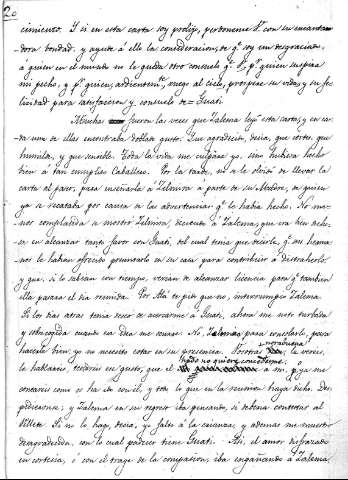 20
cimiento. Y si en esta carta soy prolijo, perdoneme V. con su encanta-
dora bondad; y ayude á ello la consideracion, de qe. soy un desgraciado,
á quien en el mundo no le queda otro consuelo qe. V., pr. quien suspira
mi pecho, y pr. quien, ardientemte. ruego al cielo, prospere su vida, y su fe-
licidad para satisfaccion y consuelo de = Guati.
Muchas fueron las veces que Zalema leyó esta carta, y en ca-
da una de ellas encontraba doblado gusto. Que agradecido, decia, que cortes, que
humilde, y que amable! Toda la vida me culpára yo, sino hubiera hecho
bien á tan cumplido Caballero. Por la tarde, no se olvidó de llevar la
carta al paseo, para enseñarla á Zelmira á parte de su Madre, de quien
ya se recataba por causa de las advertencias qe. le habia hecho. No me-
nos complacida se mostró Zelmira, diciendo á Zalema, que era bien dicho-
sa en alcanzar tanto favor con Guati, del cual tenia que decirla, qe. sus herma-
nos le habian ofrecido presentarlo en su casa para contribuir á distraherlo;
y que, si lo sabian con tiempo, verian de alcanzar licencia para qe. tambien
ella pasara el dia reunida. Por Alá te pido que no, interrumpió Zalema.
Si los dias atras tenia deseo de acercarme á Guati, ahora me siento turbada
y sobrecogida cuando esa idea me ocurre. No, Zelmira; para consolarlo, para
hacerle bien, yo no necesito estar en su presencia. Vosotras le vereis,
le hablareis, tendreis un gusto, que el hado no quiere concederme; á mi, qe. ya me
contareis como os ha ido con él, y todo lo que en la reunion haya dicho. Des-
pidieronse; y Zalema en su regreso iba pensando, si deberia contestar al
billete. Si no lo hago, decia, yo falto á la crianza, y ademas me muestro
desagradecida, con lo cual padecer tiene Guati. Asi, el amor disfrazado
en cortesia, ó con el trage de la compasion, iba engañando á Zalema,